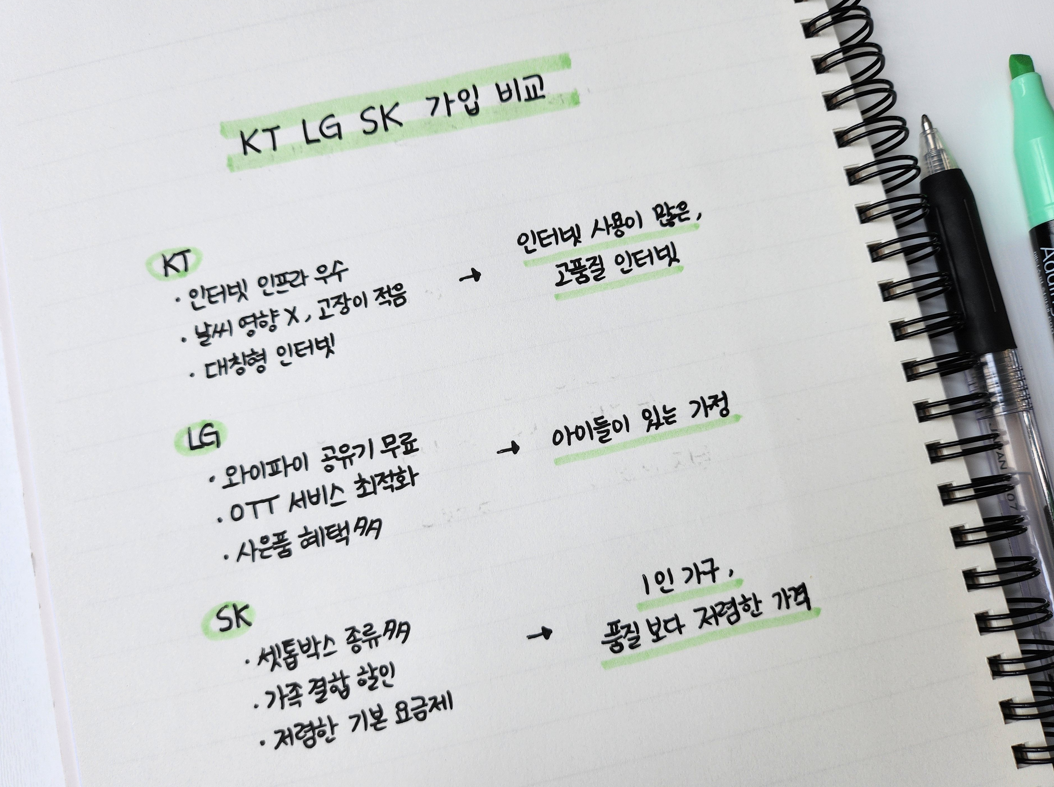 KT LG SK 가입 비교
KT
· 인터넷 인프라 우수
· 날씨 영향 X, 고장이 적음
· 대칭형 인터넷
→ 인터넷 사용이 많은,
고품질 인터넷
LG
· 와이파이 공유기 무료
· OTT 서비스 최적화
· 사은품 혜택 多多
→ 아이들이 있는 가정
SK
· 셋톱박스 종류 多多
· 가족 결합 할인
· 저렴한 기본 요금제
→ 1인 가구,
품질 보다 저렴한 가격